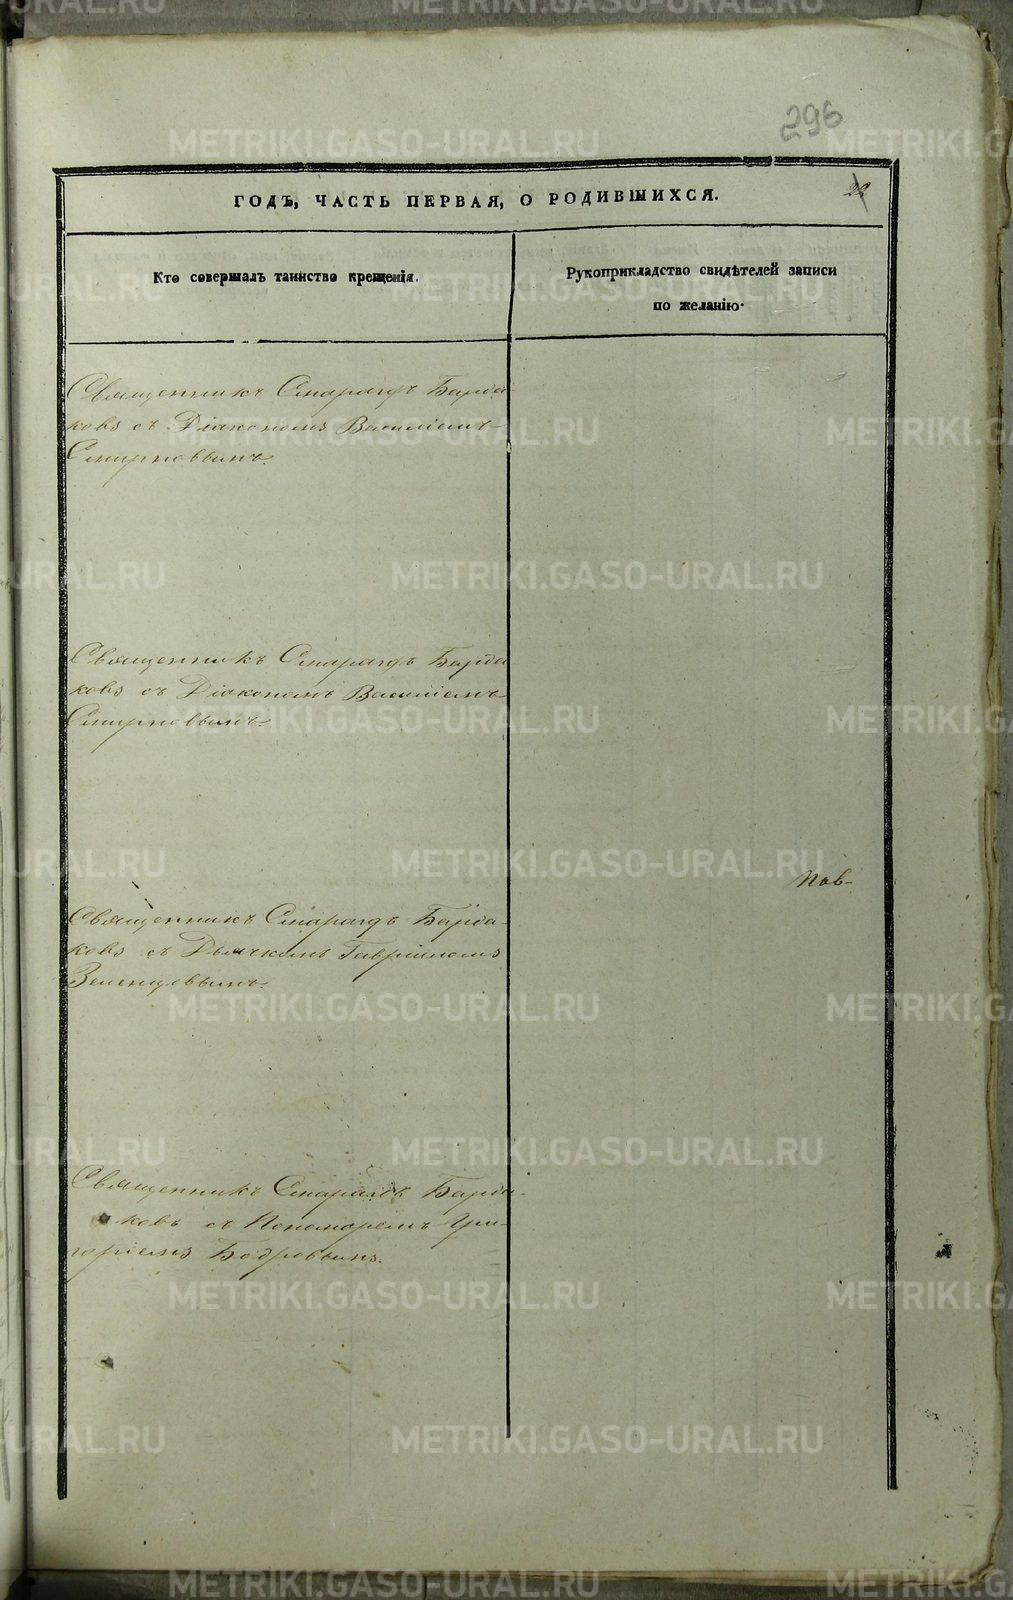 296
22
ГОДЪ, ЧАСТЬ ПЕРВАЯ, О РОДИВШИХСЯ.
Кто совершалъ таинство крещенія.
Рукоприкладство свидѣтелей записи
по желанію.
Священникъ Смарагдъ Барда-
ковъ съ Діакономъ Василіемъ
Смирновымъ.
Священникъ Смарагдъ Барда-
ковъ съ Діакономъ Василіемъ
Смирновымъ.
Пов-
Священникъ Смарагдъ Барда-
ковъ съ Дьячкомъ Гавріиломъ
Зеленцовымъ.
Священникъ Смарагдъ Барда-
ковъ съ Пономаремъ Гри-
горіемъ Бодровымъ.
METRIKI.GASO-URAL.RU